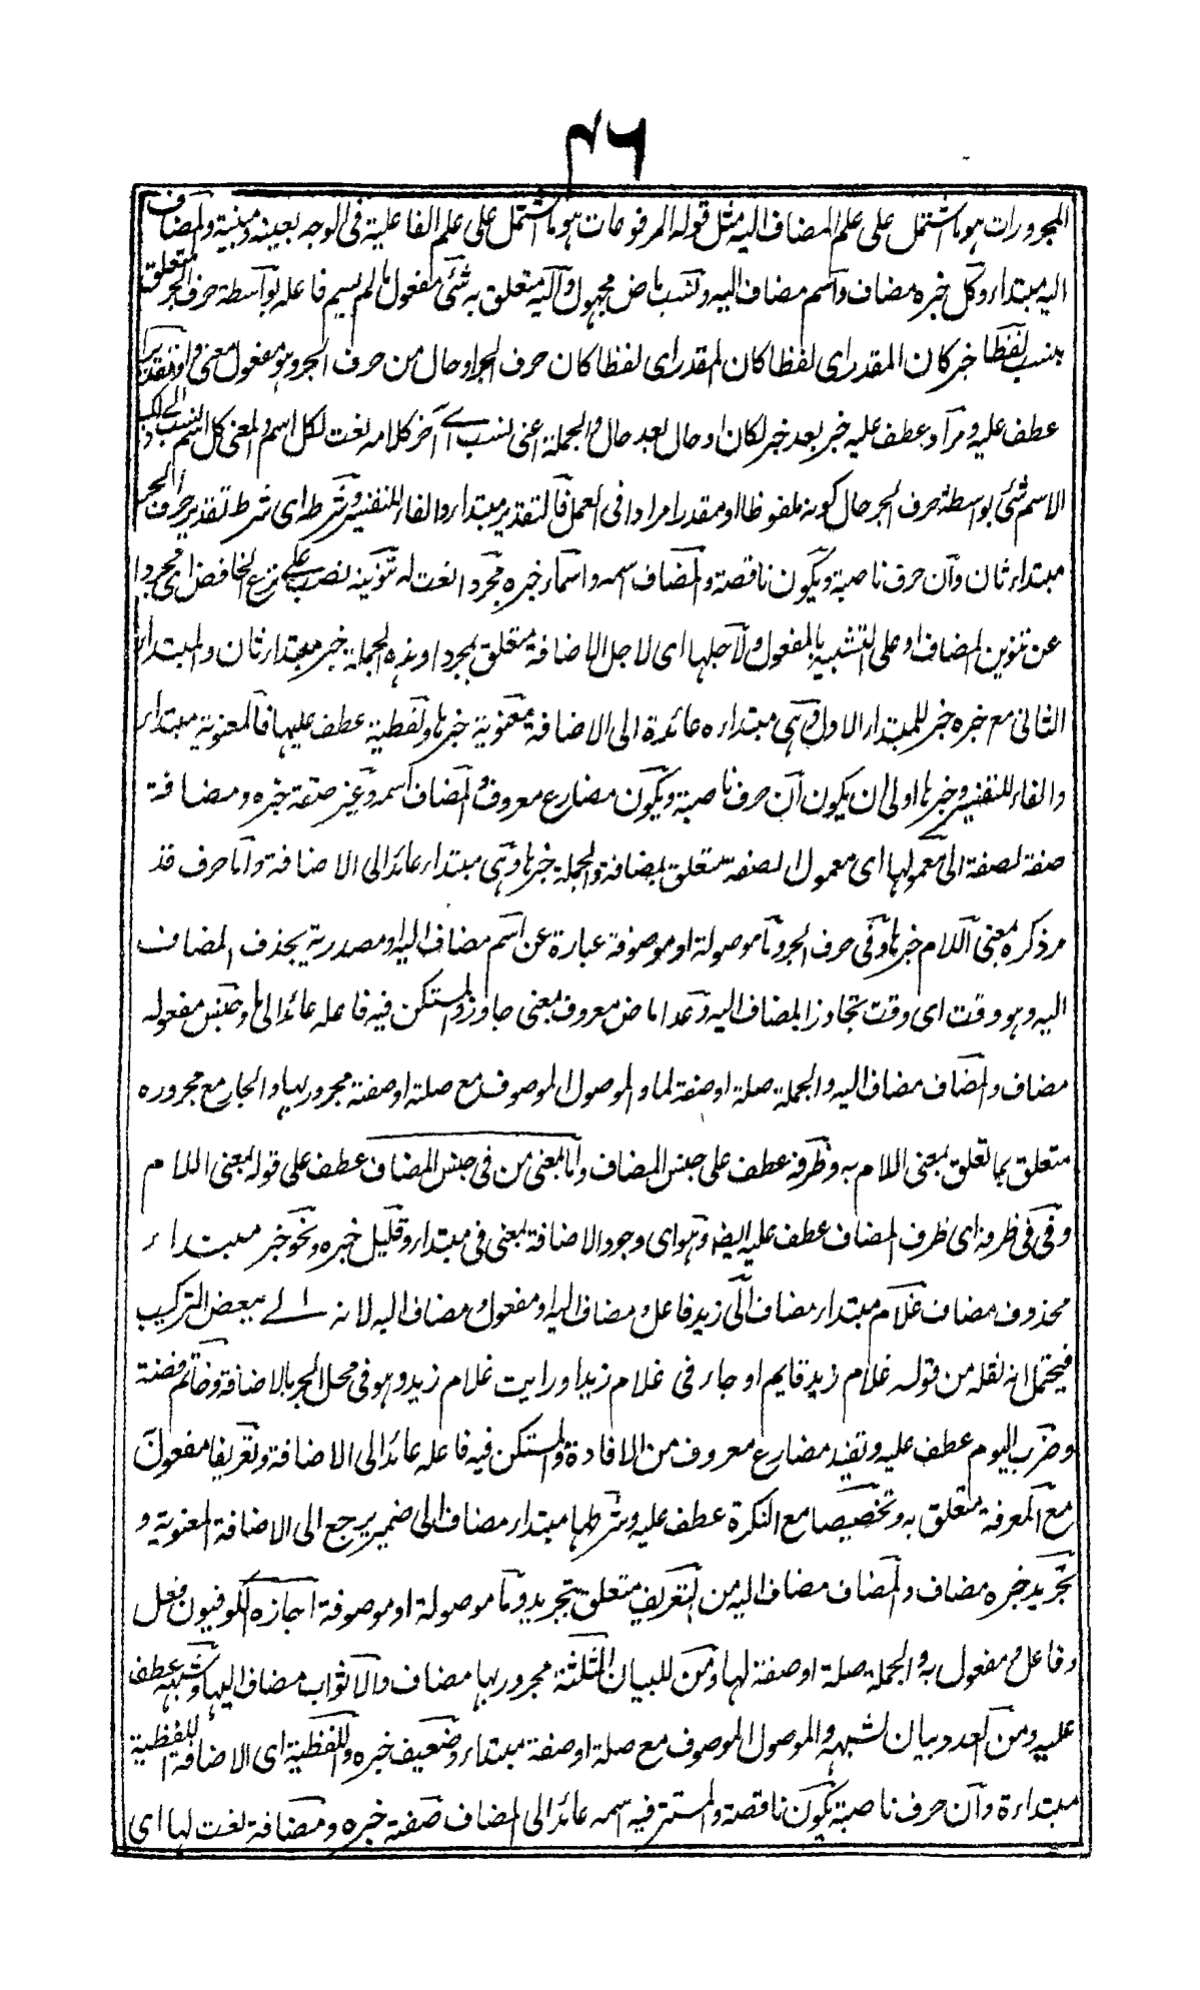 ٣٦
المجرورات هو ما اشتمل على علم المضاف اليه مثل قوله المرفوعات هو ما اشتمل على علم الفاعلية فى الوجه بعينه ومبنية والمضاف
اليه مبتداء وكل خبره مضاف واسم مضاف اليه ونسب ماض مجهول واليه متعلق به شئ مفعول ما لم يسم فاعله بواسطة حرف الجر متعلق
بنسب لفظا خبر كان المقدر اى لفظا كان المقدر اى لفظا كان حرف الجر او حال من حرف الجر وهو مفعول معنى او تقديرا
عطف عليه ومرادا عطف عليه خبر بعد خبر لكان او حال بعد حال والجملة اعنى نسب الى آخر كلامه نعت لكل اسم والمعنى كل اسم نسب الى
الاسم شئ بواسطة حرف الجر حال كونه ملفوظا او مقدرا مرادا فى العمل فالتقدير مبتداء والفاء للتفسير وشرطه اى شرط تقدير حرف الجر
مبتداء ثان وان حرف ناصبة ويكون ناقصة والمضاف اسمه واسما خبره مجردا نعت له تنوينه نصب على نزع الخافض اى مجردا
عن تنوين المضاف او على التشبيه بالمفعول ولاجلها اى لاجل الاضافة متعلق بمجردا وهذه الجملة خبر مبتداء ثان والمبتداء
الثانى مع خبره خبر للمبتداء الاول وهى مبتداءه عائدة الى الاضافة معنوية خبرها ولفظية عطف عليها فالمعنوية مبتداء
والفاء للتفسير وخبرها اولى ان يكون ان حرف ناصبة ويكون مضارع معروف والمضاف اسمه وغير صفة خبره ومضافة
صفة لصفة الى معمولها اى معمول الصفة متعلق بمضافة والجملة خبرها وهى مبتداء عائد الى الاضافة واما حرف قد
مر ذكره بمعنى اللام خبرها وفى حرف الجر وما موصولة او موصوفة عبارة عن اسم مضاف اليه او مصدرية بحذف المضاف
اليه وهو وقت اى وقت تجاوز المضاف اليه وعدا ماض معروف بمعنى جاوز والمستكن فيه فاعله عائد الى ما وجنس مفعوله
مضاف والمضاف مضاف اليه والجملة صلة او صفة لما والموصول او الموصوف مع صلة او صفة مجرور بها والجار مع مجروره
متعلق بما تعلق بمعنى اللام به وظرفه عطف على جنس المضاف واما بمعنى من فى جنس المضاف عطف على قوله بمعنى اللام
وفى فى ظرفه اى ظرف المضاف عطف عليه ايضا وهو اى وجود الاضافة بمعنى فى مبتداء وقليل خبره ونحو خبر مبتداء
محذوف مضاف غلام مبتداء مضاف الى زيد فاعل ومضاف اليه او مفعول ومضاف اليه لانه الى بعض التركيب
فيحتمل انه نقله من قوله غلام زيد قايم او جاءنى غلام زيد او رايت غلام زيد وهو فى محل الجر بالاضافة وخاتم فضة
وضرب اليوم عطف عليه وتفيد مضارع معروف من الافادة والمستكن فيه فاعله عائد الى الاضافة وتعريفا مفعول
مع المعرفة متعلق به وتخصيصا مع النكرة عطف عليه وشرطها مبتداء مضاف الى ضمير يرجع الى الاضافة المعنوية و
تجريد خبره مضاف والمضاف مضاف اليه من التعريف متعلق بتجريد وما موصولة او موصوفة اجازه الكوفيون فعل
وفاعل ومفعول به والجملة صلة او صفة لها ومن للبيان الثلثة مجرور بها مضاف والاثواب مضاف اليها وشبهه عطف
عليه ومن العدد بيان لشبهه والموصول او الموصوف مع صلة او صفة مبتداء وضعيف خبره واللفظية اى الاضافة اللفظية
مبتداءة وان حرف ناصبة يكون ناقصة والمستتر فيه اسمه عائد الى المضاف صفة خبره ومضافة نعت لها اى